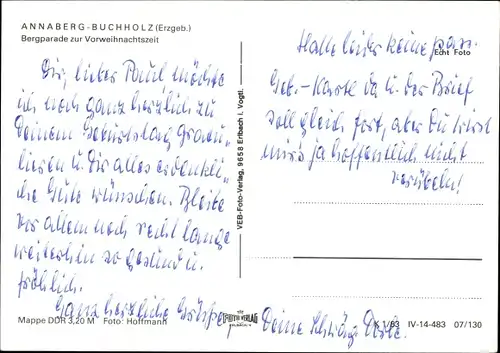 ANNABERG-BUCHHOLZ (Erzgeb.)
Bergparade zur Vorweihnachtszeit
Dir, lieber Paul möchte
ich noch ganz herzlich zu
Deinem Geburtstag gratu-
lieren u. Dir alles erdenkli-
che Gute wünschen. Bleibe
vor allem noch recht lange
weiterhin so gesund u.
fröhlich.
Ganz herzliche Grüße
Deine
Mappe DDR 3,20 M Foto: Hoffmann
VEB-Foto-Verlag, 9658 Erlbach i. Vogtl.
Echt Foto
Hatte leider keine pass.
Geb.-Karte da u. der Brief
soll gleich fort, aber Du wirst
mir's ja hoffentlich nicht
verübeln!
K 1/83 IV-14-483 07/130